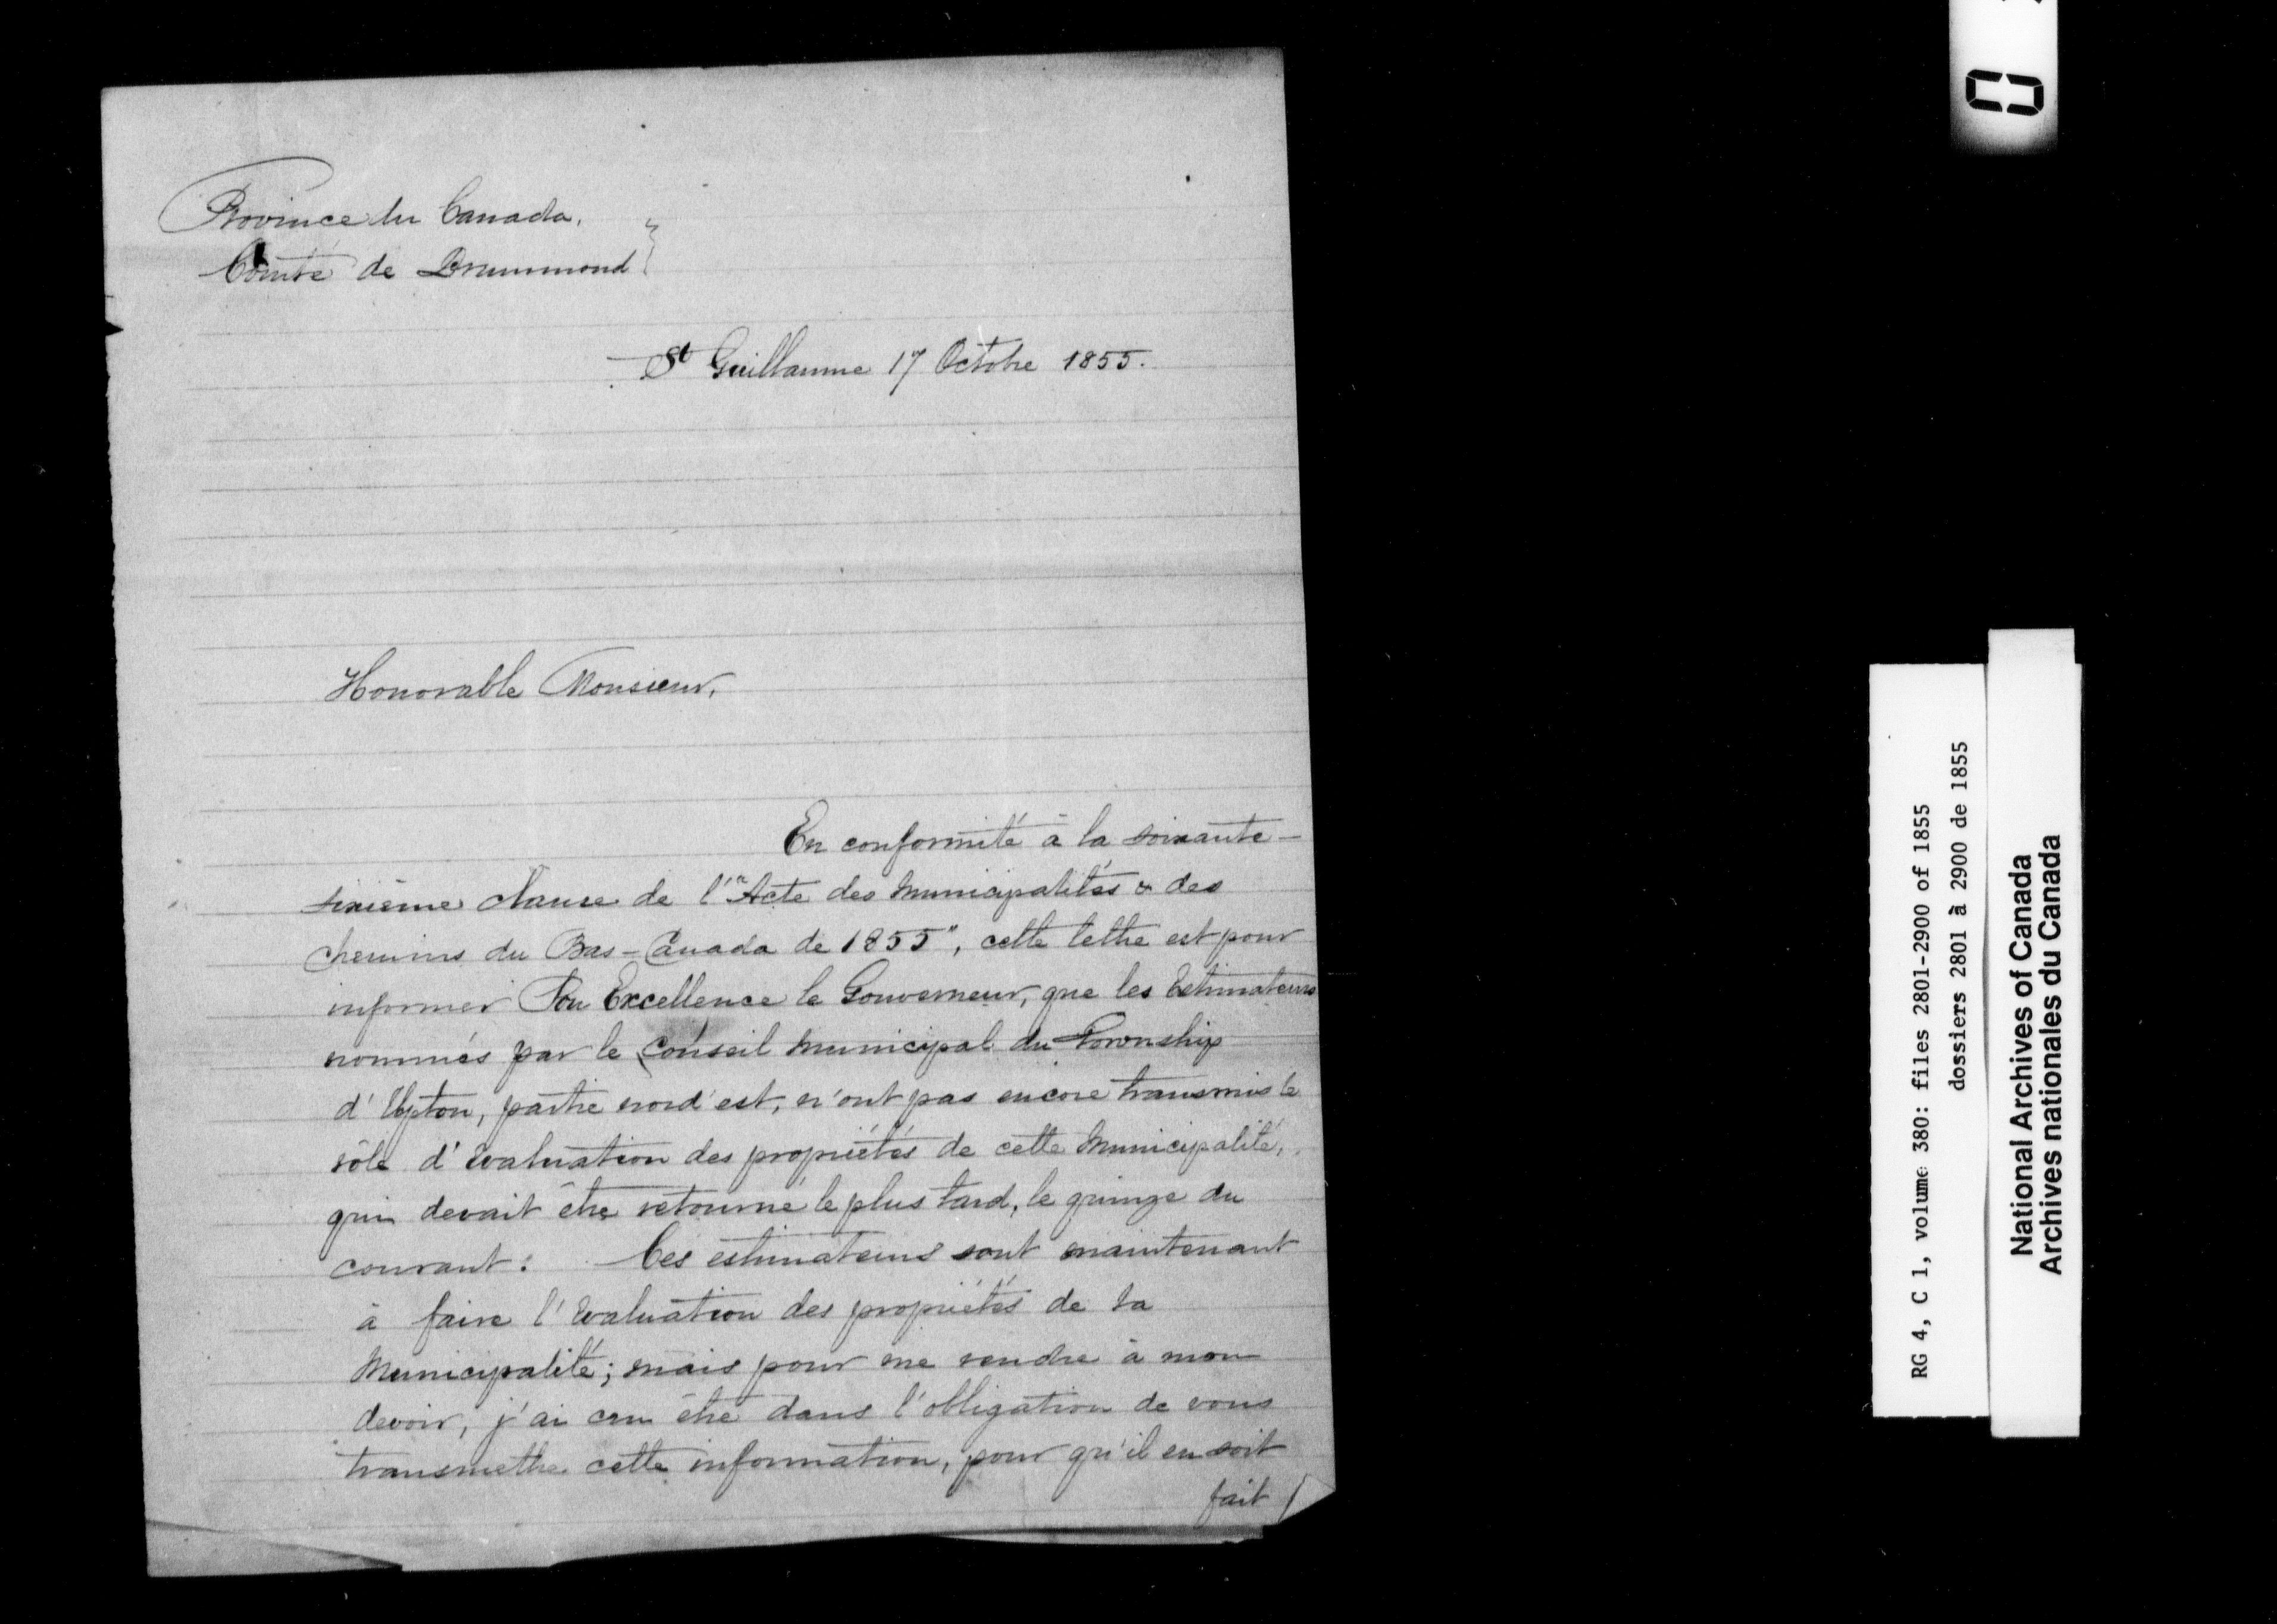 Province du Canada,
Comté de Drummond
St Guillaume 17 Octobre 1855.
Honorable Monsieur,
En conformité à la soixante-
sixième clause de l'"Acte des Municipalités & des
chemins du Bas-Canada de 1855", cette lettre est pour
informer Son Excellence le Gouverneur, que les Estimateurs
nommés par le Conseil Municipal du Township
d'Upton, partie nord'est, n'ont pas encore transmis le
rôle d'évaluation des propriétés de cette Municipalité,
qui devait être retourné le plus tard, le quinze du
courant: Ces estimateurs sont maintenant
à faire l'évaluation des propriétés de la
Municipalité; mais pour me rendre à mon
devoir, j'ai cru être dans l'obligation de vous
transmettre cette information, pour qu'il en soit
fait /
0
RG 4, C 1, volume 380: files 2801-2900 of 1855
dossiers 2801 à 2900 de 1855
National Archives of Canada
Archives nationales du Canada